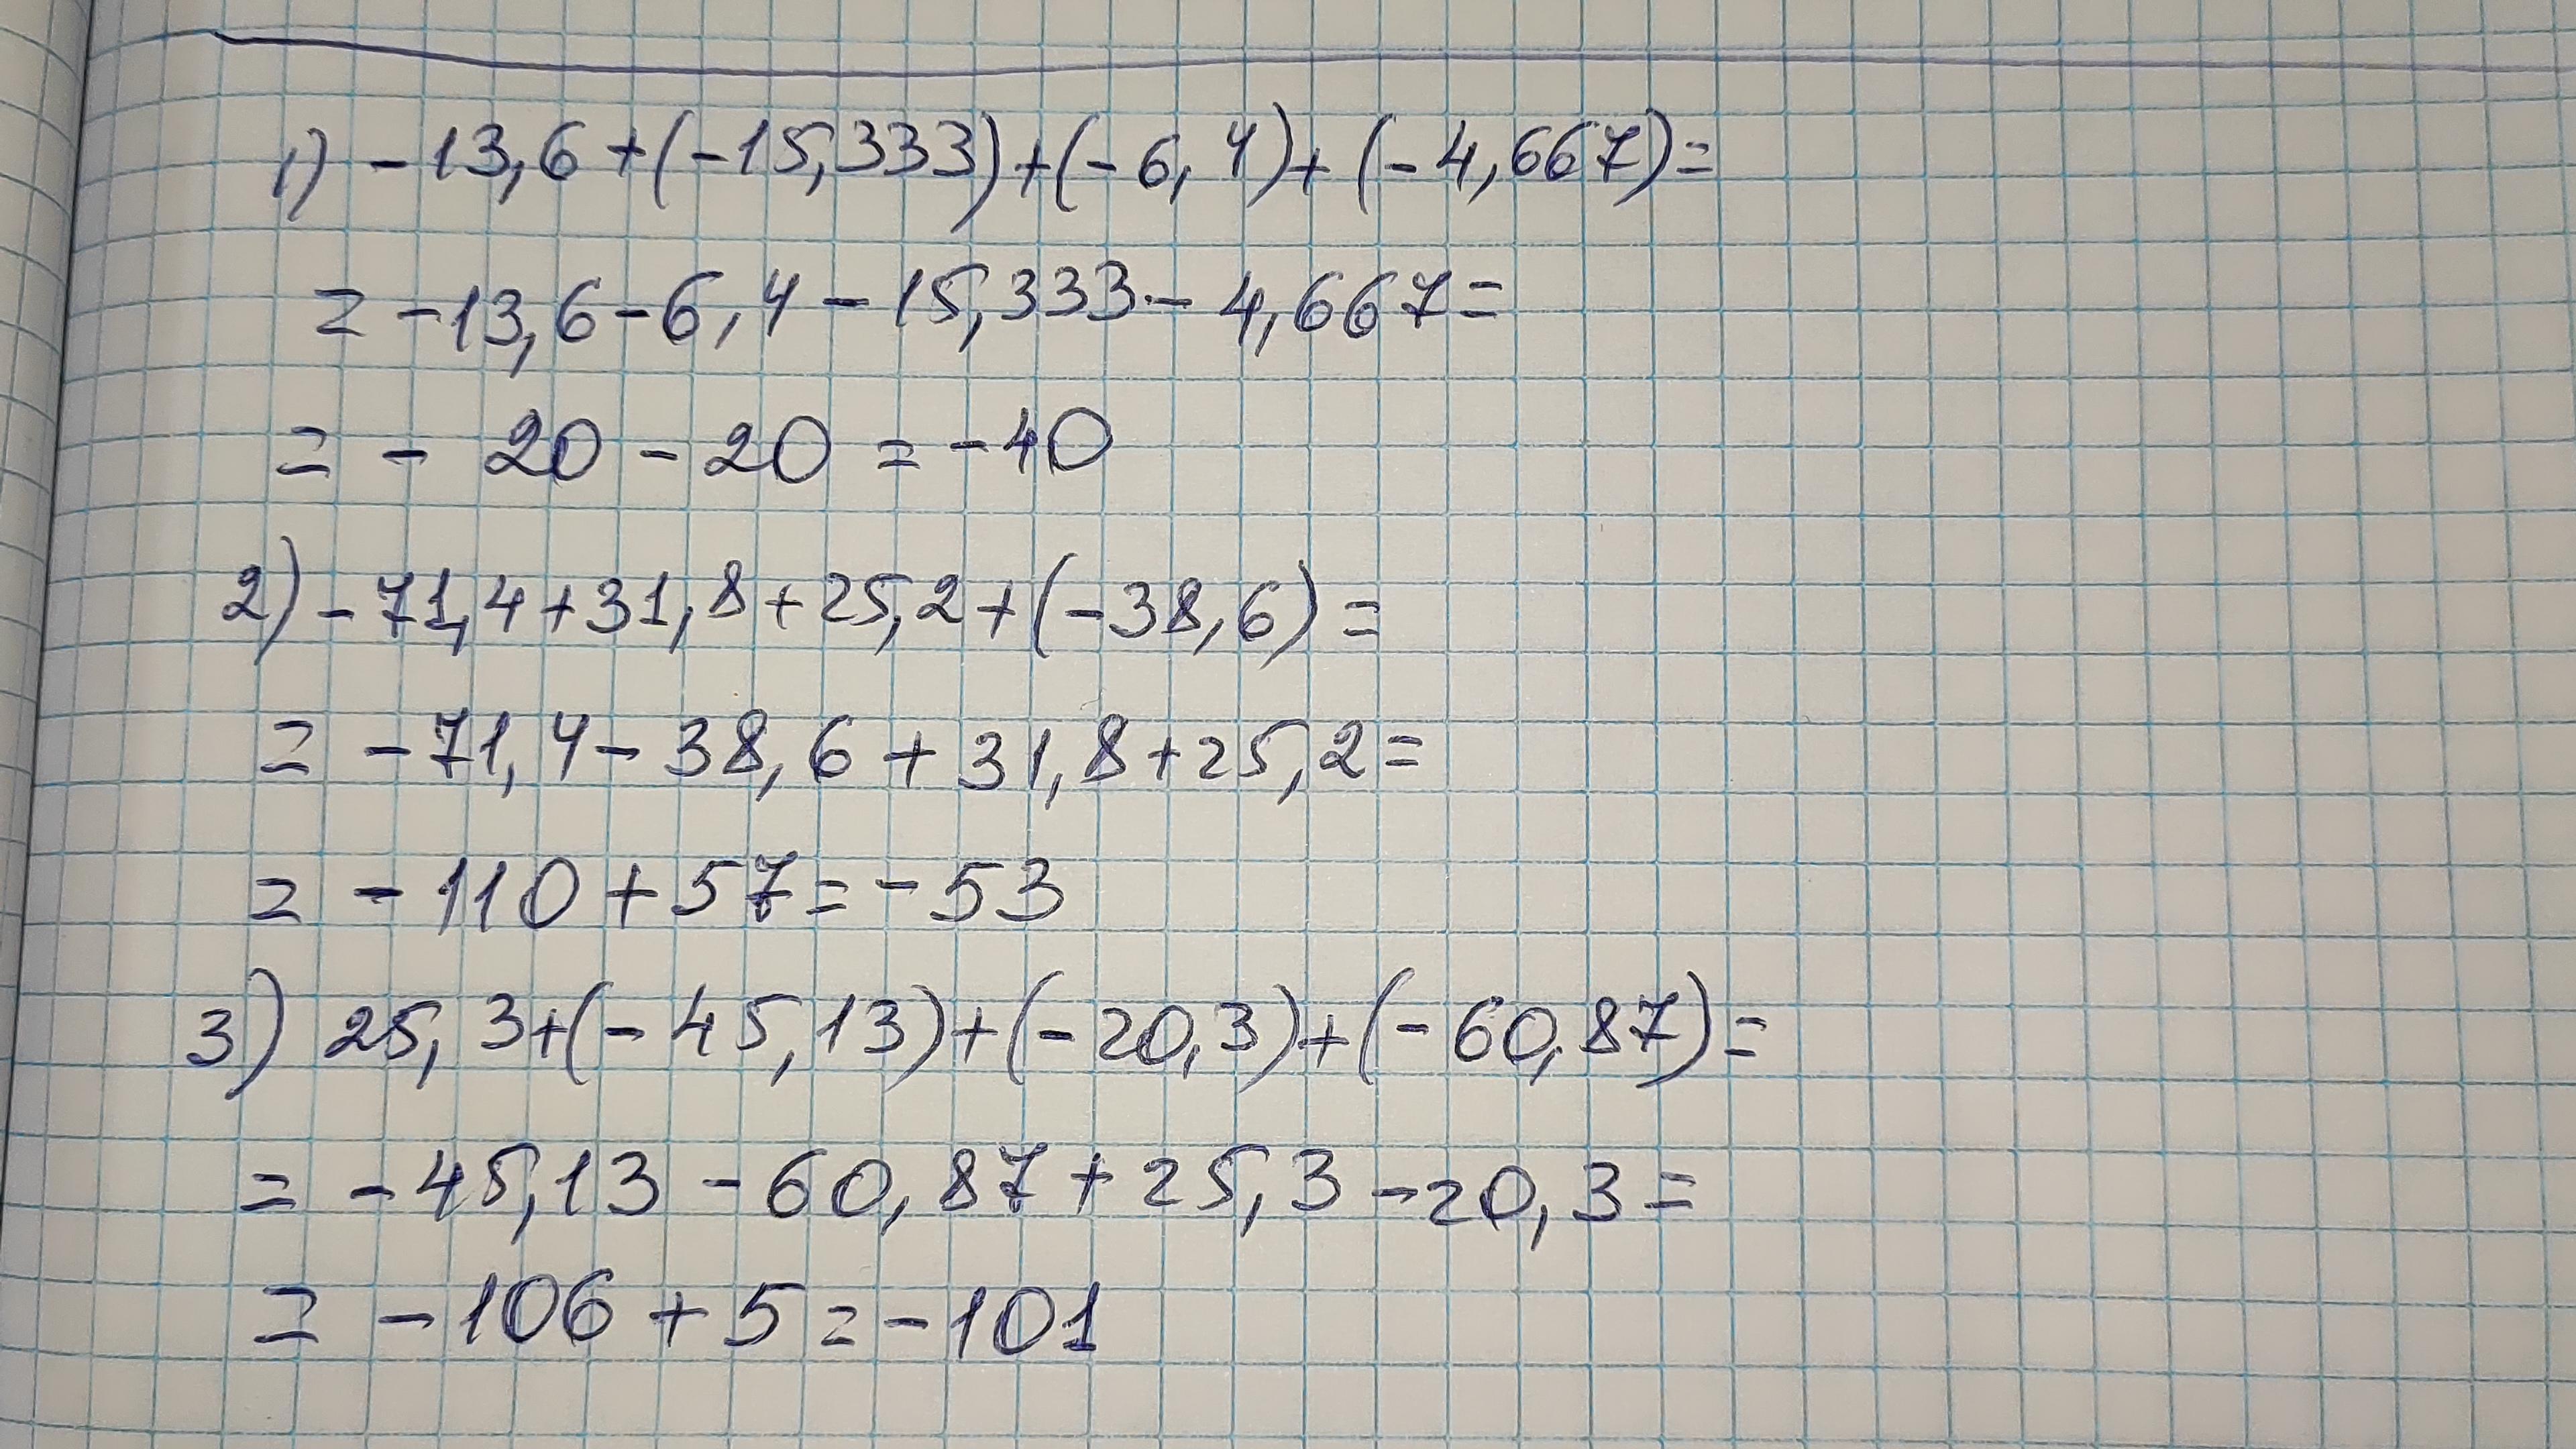 1) -13,6+(-15,333)+(-6,4)+(-4,667)=
= -13,6-6,4-15,333-4,667=
= - 20 - 20 = -40
2) -71,4+31,8+25,2+(-38,6)=
= -71,4-38,6+31,8+25,2=
= -110+57=-53
3) 25,3+(-45,13)+(-20,3)+(-60,87)=
= -45,13-60,87+25,3-20,3=
= -106+5=-101